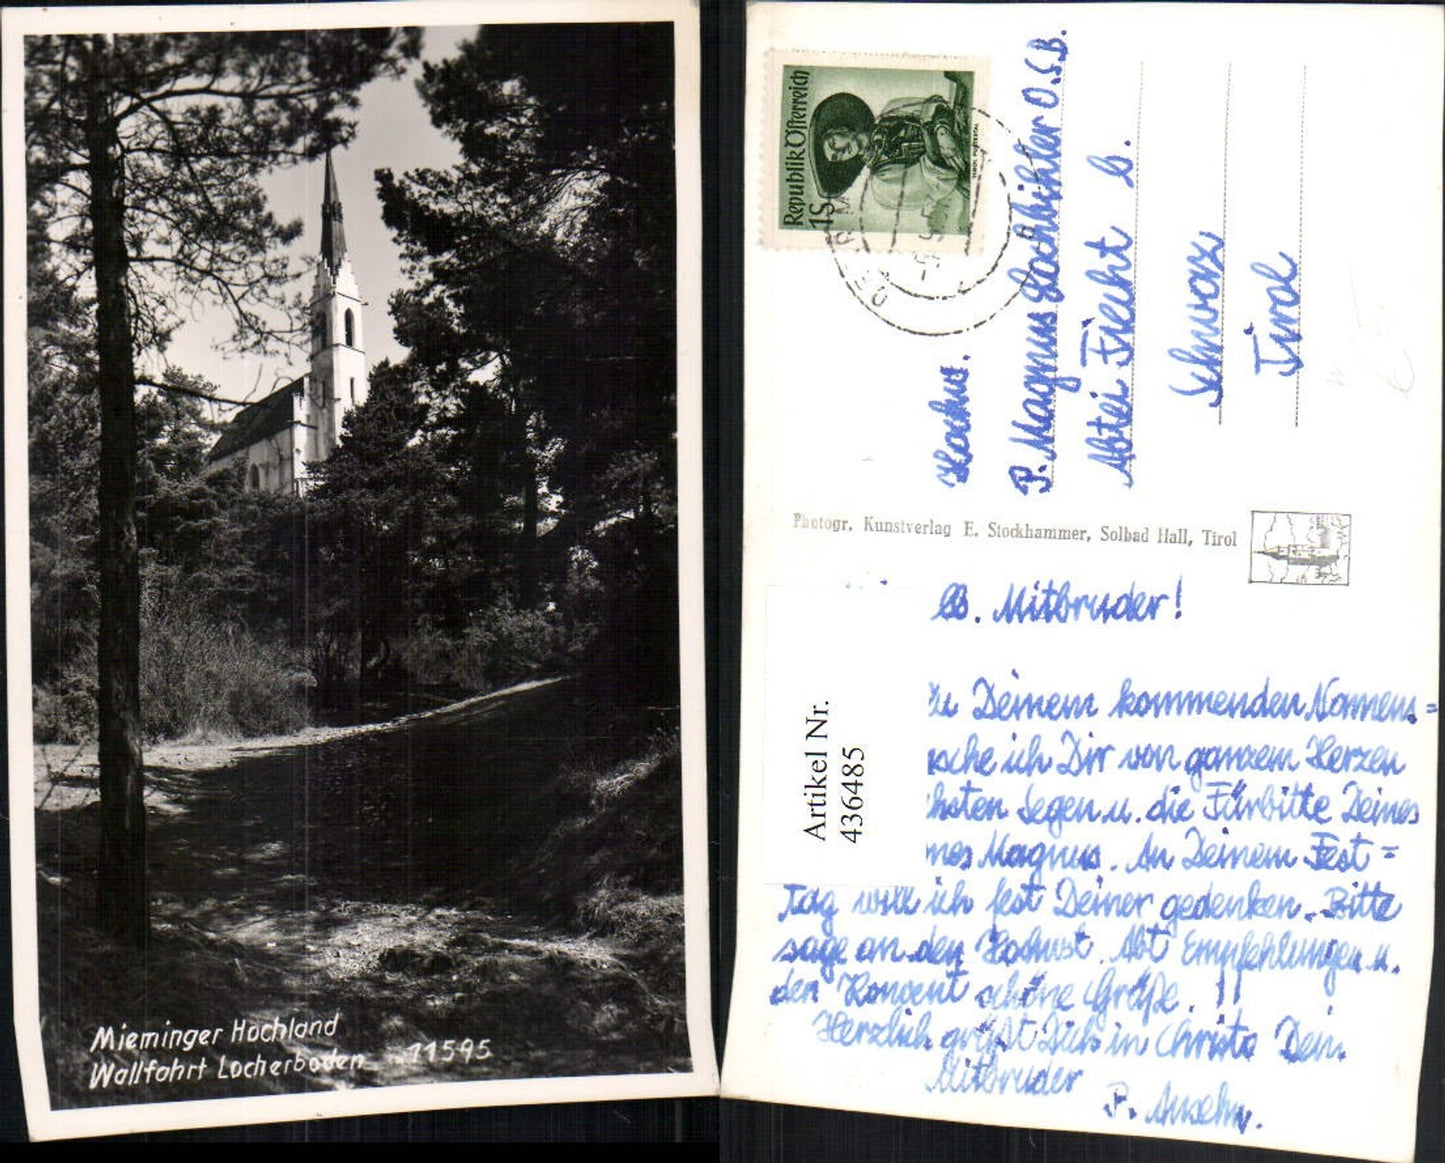 Mieminger Hochland
Wallfahrt Locherboden 11595
Republik Österreich
1S
Hochw.
P. Magnus Lochbihler O.S.B.
Abtei Fiecht b.
Schwaz
Tirol
Photogr. Kunstverlag E. Stockhammer, Solbad Hall, Tirol
Artikel Nr.
436485
lb. Mitbruder!
Zu Deinem kommenden Namens=
nsche ich Dir von ganzem Herzen
hsten Segen u. die Fürbitte Deines
nes Magnus. An Deinem Fest=
tag will ich fest Deiner gedenken. Bitte
sage an den Hochwst. Abt Empfehlungen u.
den Konvent schöne Grüße.
Herzlich grüßt Dich in Christo Dein
Mitbruder
P. Anselm.